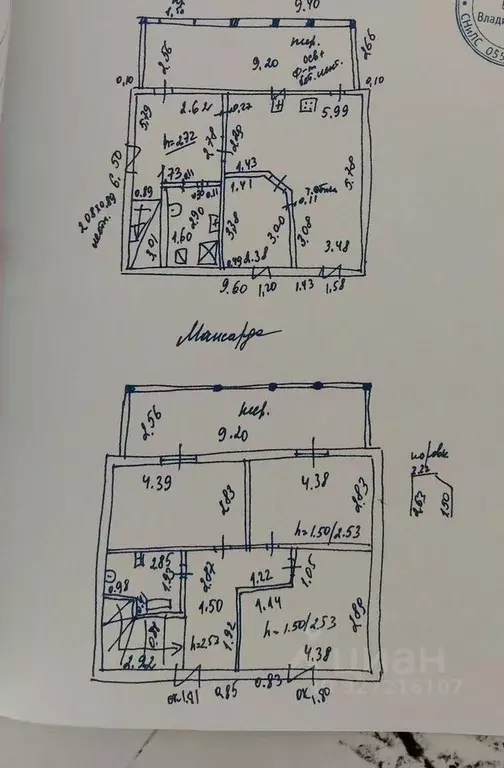 9.40
2.56
9.20
тер.
2.66
0.10
0.10
5.79
2.62
0.27
5.99
h=2.72
2.78
2.90
6.50
1.73
0.11
1.43
1.41
0.11
5.70
0.89
2.08x0.89
2.90
1.60
3.01
3.78
3.00
3.08
3.48
0.49
2.38
9.60
1.20
1.43
1.58
Мансарда
2.56
тер.
9.20
4.39
2.83
4.38
2.83
h=1.50/2.53
2.22
2.63
1.90
2.85
1.93
0.98
1.22
1.05
1.50
1.44
h=2.53
1.92
h=1.50/2.53
2.89
2.92
4.38
ок 1.81
0.85
0.83
ок 1.80
циан
327216107
СНиЛС 055
Влади